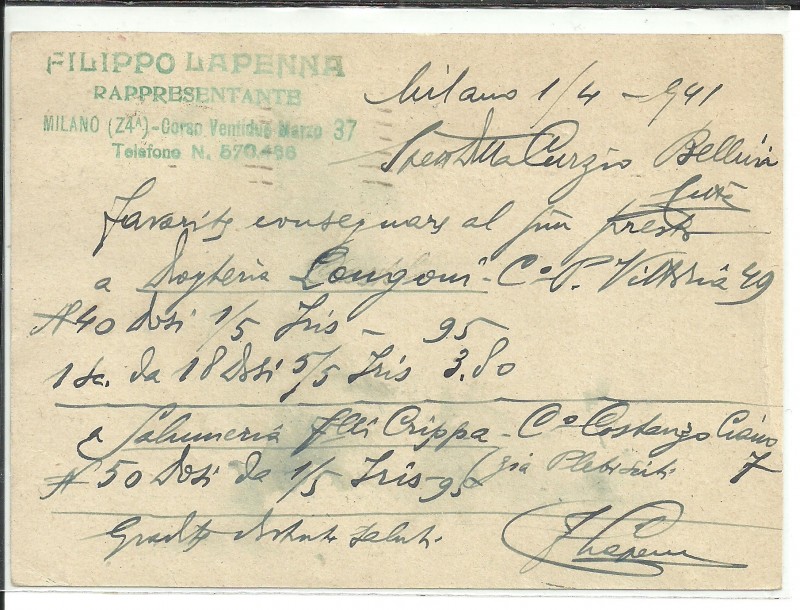 FILIPPO LAPENNA
RAPPRESENTANTE
MILANO (Z4^) - Corso Ventidue Marzo 37
Telefono N. 570.486
Milano 1/4 - 941
Spett Ditta Curzio Bellini
Città
Favorite consegnare al più presto
a Drogheria Longoni - Cº P. Vittoria 49
N 40 Dosi 1/5 Iris - 95
1 sc. da 18 Dosi 5/5 Iris 3.80
a Salumeria Flli Crippa - Cº Costanzo Ciano 7
N 50 Dosi da 1/5 Iris - 95 (già Plebisciti
Gradite distinti saluti
FLapenna